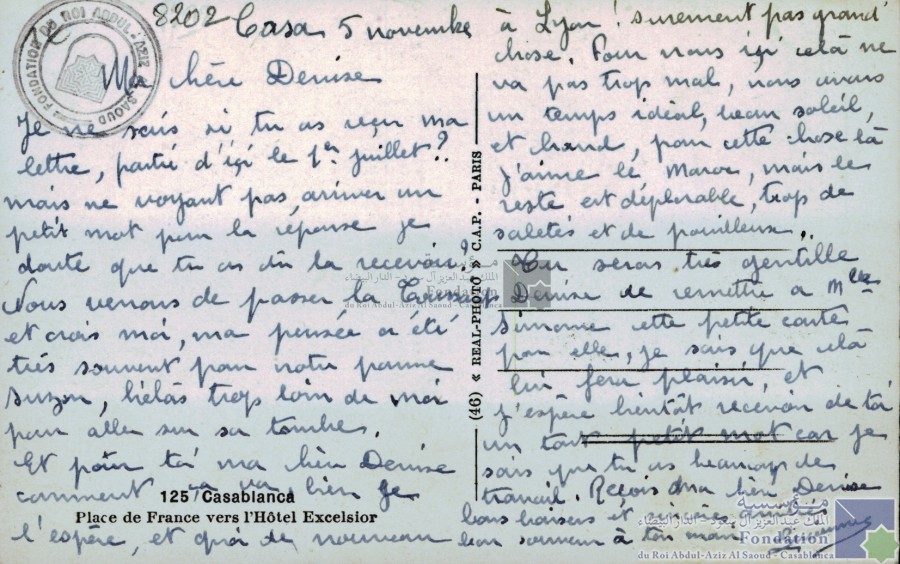 8202
FONDATION DU ROI ABDUL-AZIZ AL SAOUD
Casa 5 novembre
Ma chère Denise
Je ne sais si tu as reçu ma
lettre, partie d'içi le 1er juillet?
mais ne voyant pas arriver un
petit mot pour la réponse je
doute que tu as dû la recevoir?
Nous venons de passer la Toussaint
et crois moi, ma pensée a été
très souvent pour notre pauvre
Suzon, hélàs trop loin de moi
pour aller sur sa tombe.
Et pour toi ma bien Denise
comment ça va, bien je
l'espère, et quoi de nouveau
125 Casablanca
Place de France vers l'Hôtel Excelsior
(46) « REAL-PHOTO » C.A.P. - PARIS
à Lyon! surement pas grand'
chose. Pour nous içi celà ne
va pas trop mal, nous avons
un temps idéal, beau soleil,
et chaud, pour cette chose là
j'aime le Maroc, mais le
reste est déplorable, trop de
saletés et de pouilleux.
Tu seras très gentille
Denise de remettre a Mlle
Simone cette petite carte
pour elle, je sais que celà
lui fera plaisir, et
j'espère bientôt recevoir de toi
un tout petit mot car je
sais que tu as beaucoup de
travail. Reçois ma bien Denise
bons baisers et
bon souvenir à ton mari
مؤسسة
الملك عبد العزيز آل سعود - الدار البيضاء
Fondation
du Roi Abdul-Aziz Al Saoud - Casablanca
مؤسسة
الملك عبد العزيز آل سعود - الدار البيضاء
Fondation
du Roi Abdul-Aziz Al Saoud - Casablanca